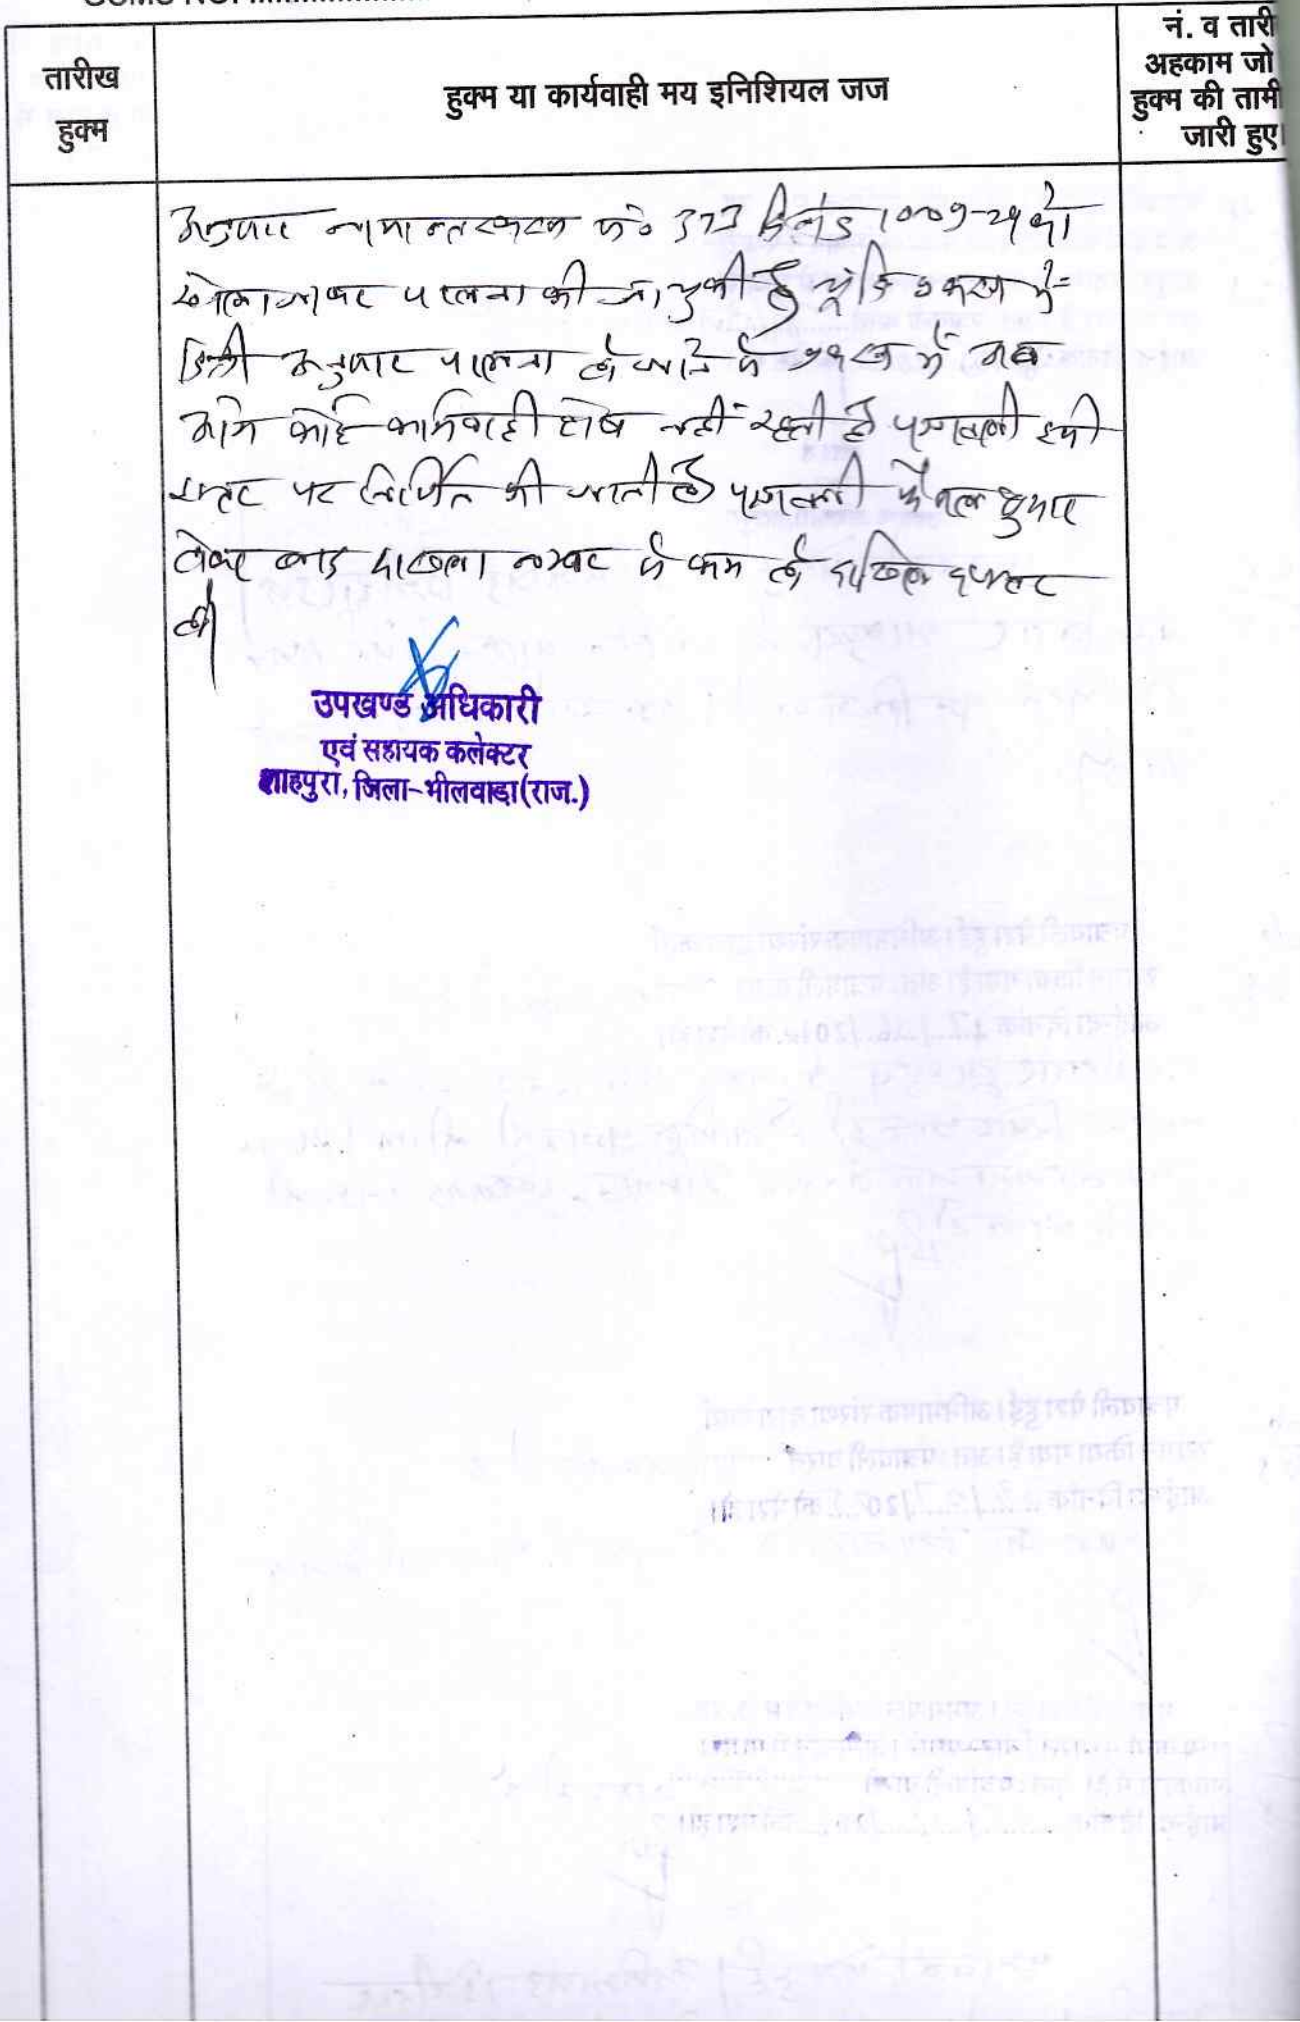 तारीख
हुक्म
हुक्म या कार्यवाही मय इनिशियल जज
नं. व तारी
अहकाम जो
हुक्म की तामी
जारी हुए।
अनुसार नामान्तरकरण सं० 373 दिनांक 10-09-24 को
खोला जाकर पालना की जा चुकी है चूंकि प्रकरण में
डिक्री अनुसार पालना हो जाने से प्रकरण में अब
आगे कोई कार्यवाही शेष नहीं रहती है पत्रावली इसी
स्तर पर निर्णित की जाती है पत्रावली फैसल शुमार
होकर बाद दाखला नम्बर से कम हो दाखिल दफ्तर
हो।
उपखण्ड अधिकारी
एवं सहायक कलेक्टर
शाहपुरा, जिला-भीलवाडा (राज.)